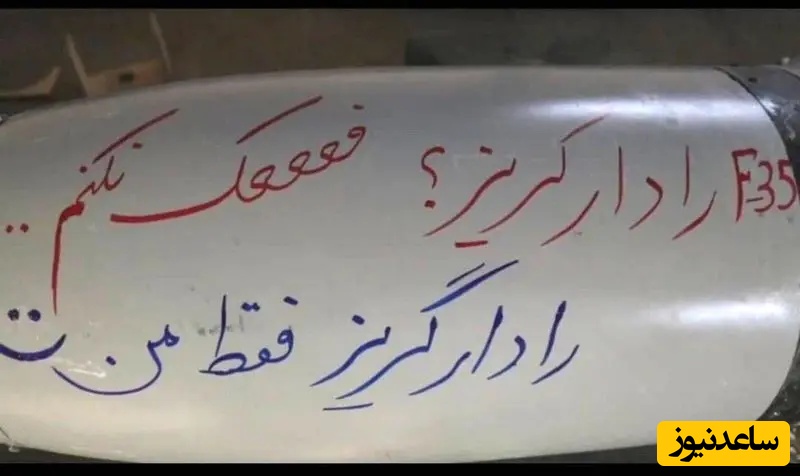 F-35 رادارگریز؟ ففففک نکنم ..
رادارگریز فقط من ت
ساعدنیوز